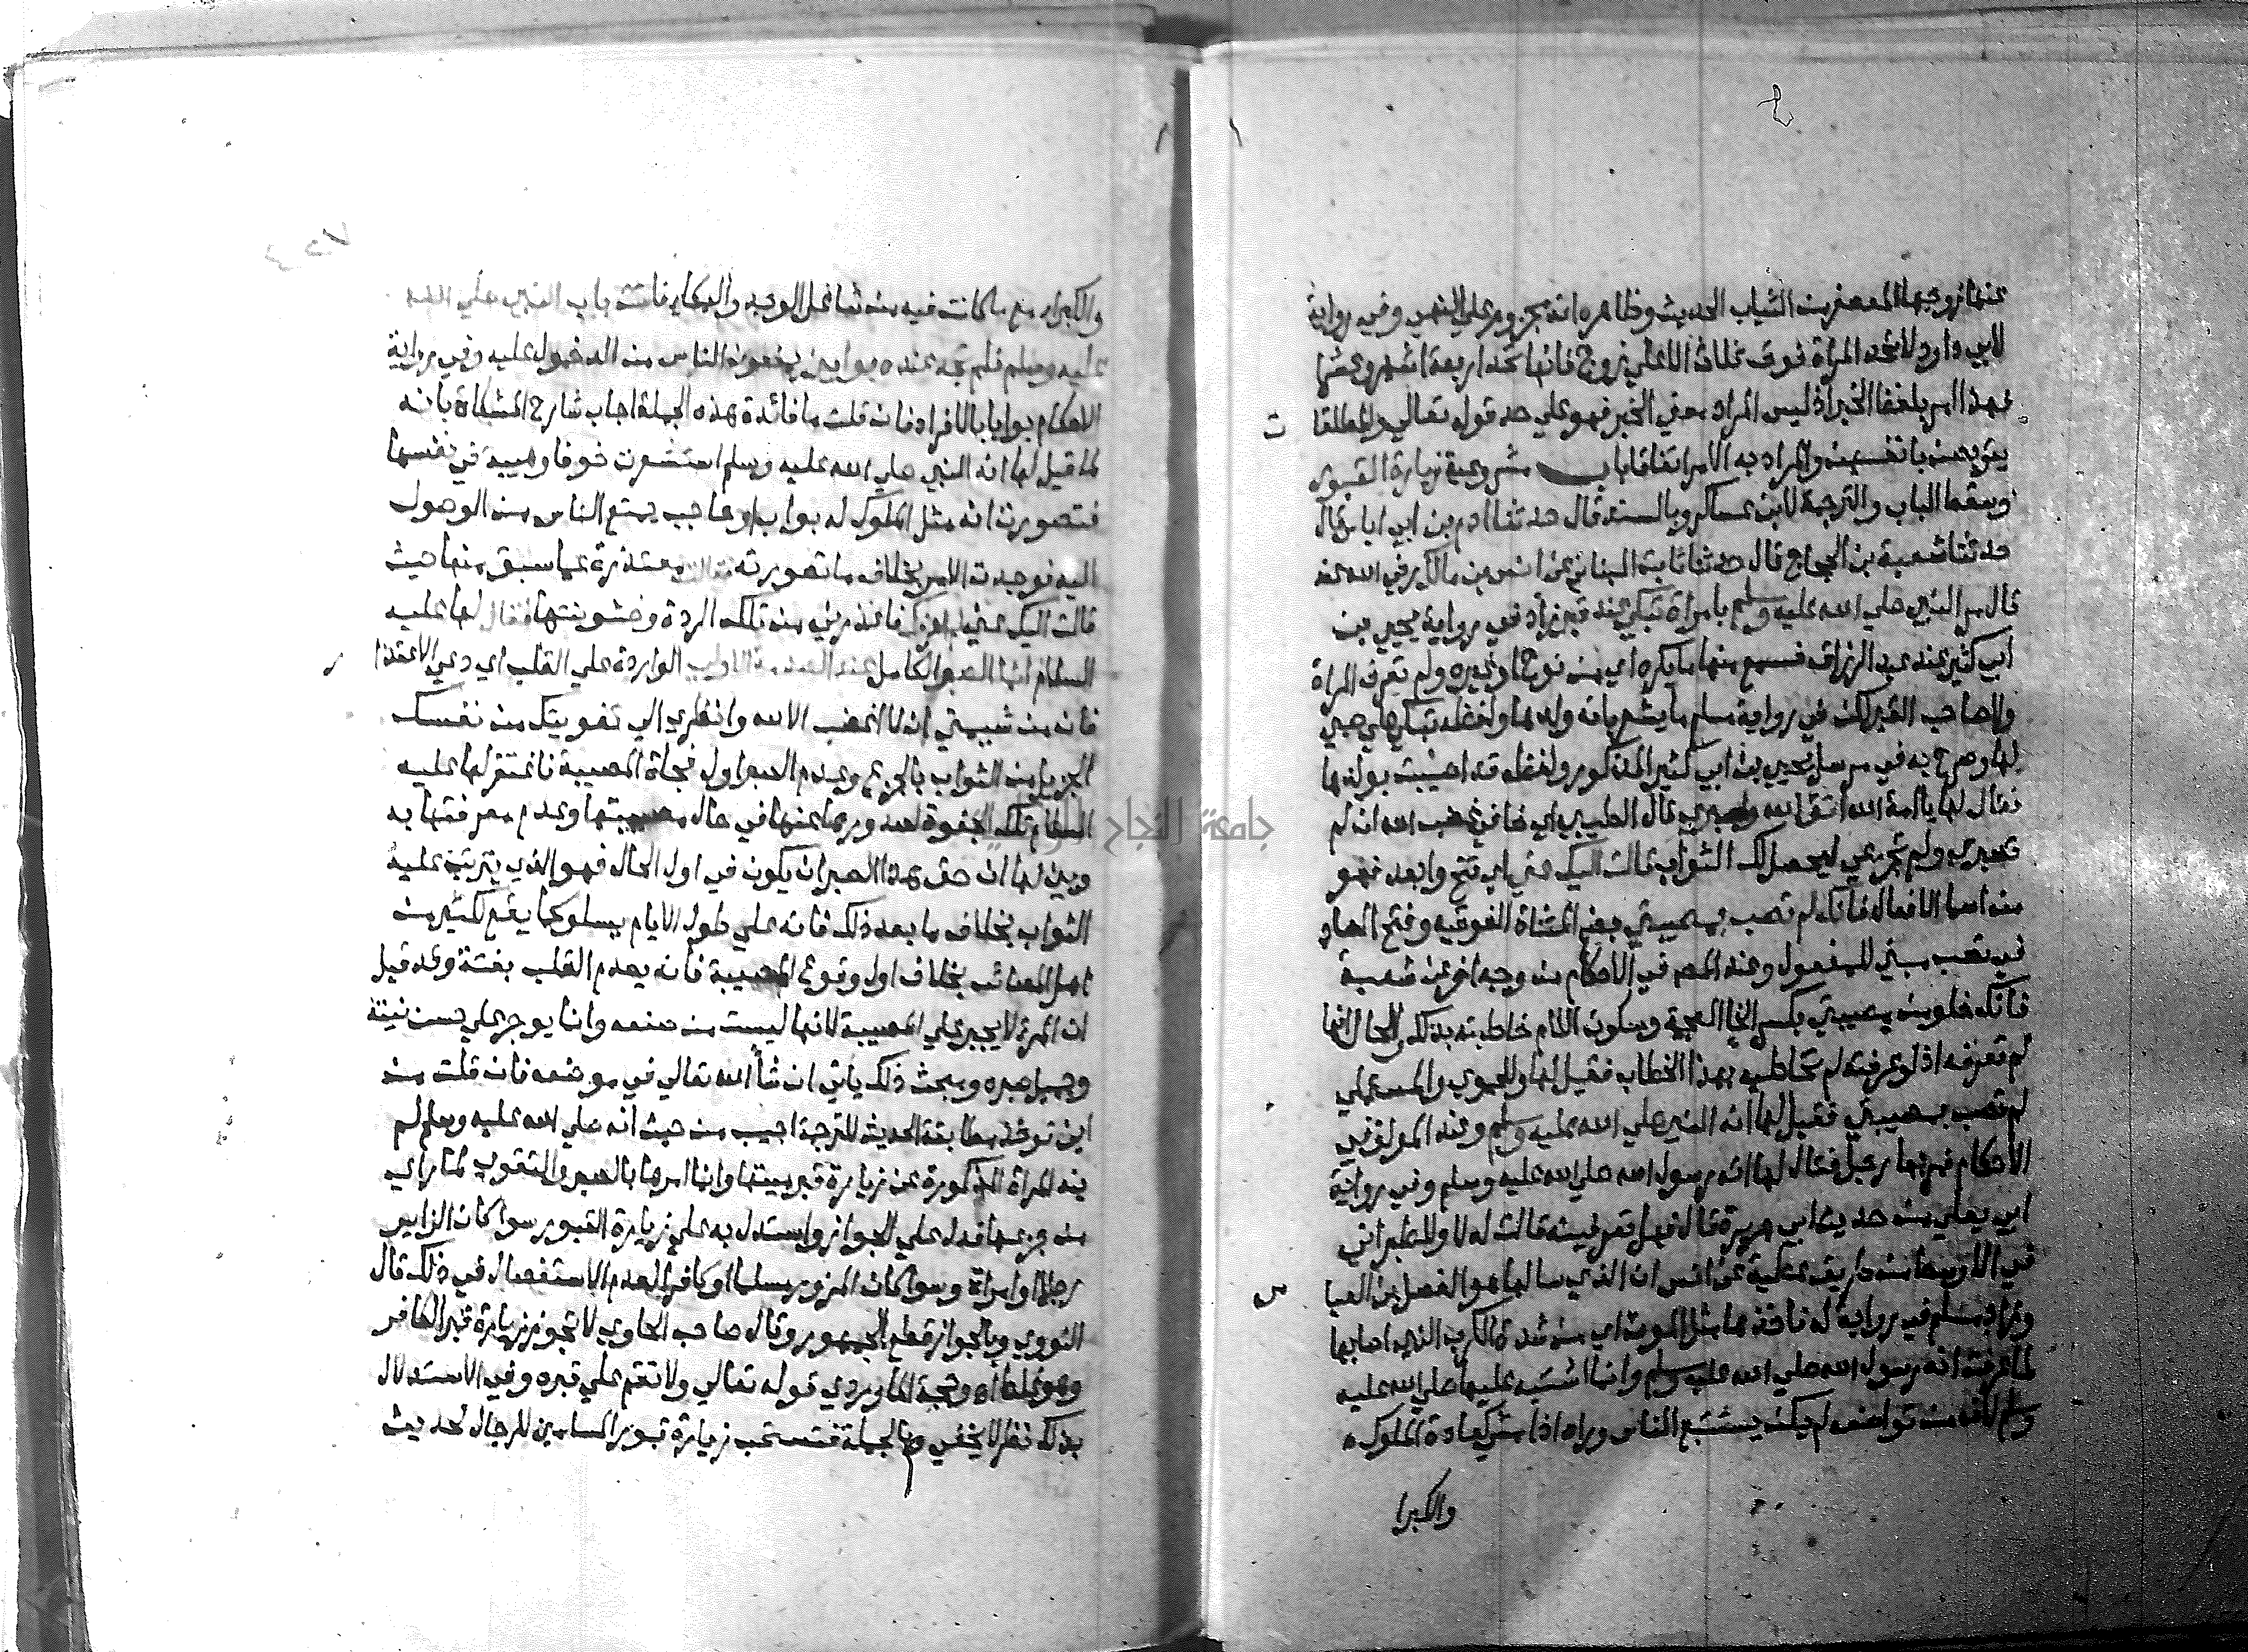 عنها زوجها المعصفر من الثياب الحديث وظاهره انه مجزوم علي النهي وفي رواية
لابي داود لا تحد المراة فوق ثلاث الا علي زوج فانها تحد اربعة اشهر وعشرا
فهذا امر بلفظ الخبر اذ ليس المراد معني الخبر فهو علي حد قوله تعالي والمطلقا
ت
يتربصن بانفسهن والمراد به الامر اتفاقا باب مشروعية زيارة القبور
وسقط الباب والترجمة لابن عساكر وبالسند قال حدثنا ادم بن ابي اياس قال
حدثنا شعبة بن الحجاج قال حدثنا ثابت البناني عن انس بن مالك رضي الله عنه
قال مر النبي صلي الله عليه وسلم بامراة تبكي عند قبر زاد في رواية يحيي بن
ابي كثير عند عبد الرزاق فسمع منها ما يكره اي من نوح او غيره ولم تعرف المراة
ولا صاحب القبر لكن في رواية مسلم ما يشعر بانه ولدها ولفظه تبكي علي صبي
لها وصرح به في مرسل يحيي بن ابي كثير المذكور ولفظه قد اصيبت بولدها
فقال لها يا امة الله اتق الله واصبري قال الطيبي اي خافي غضب الله ان لم
تصبري ولم تجزعي ليحصل لك الثواب قالت اليك عني اي تنح وابعد فهو
من اسما الافعال فانك لم تصب بمصيبتي بضم المثناة الفوقيه وفتح الصاد
في تصب مبني للمفعول وعند المصـ في الاحكام من وجه اخر عن شعبة
فانك خلو من مصيبتي بكسر الخا المعجمة وسكون اللام خاطبته بذلك والحال انها
لم تعرفه اذ لو عرفته لم تخاطبه بهذا الخطاب فقيل لها وللحموي والمستملي
لم تصب بمصيبتي فقيل لها انه النبي صلي الله عليه وسلم وعند المولف في
الاحكام فمر بها رجل فقال لها انه رسول الله صلي الله عليه وسلم وفي رواية
ابي يعلي من حديث ابي هريرة قال فهل تعرفينه قالت له لا وللطبراني
في الاوسط من طريق عطية عن انس ان الذي سالها هو الفضل بن العبا
س
وزاد مسلم في رواية له فاخذها مثل الموت اي من شدة الكرب الذي اصابها
لما عرفت انه رسول الله صلي الله عليه وسلم وانما اشتبه عليها صلي الله عليه
وسلم لانه من تواضعه لم يكن يستتبع الناس وراه اذا مشي كعادة الملوك
والكبرا
والكبراء مع ما كانت فيه من شاغل الوجد والبكاء فاتت باب النبي صلي الله
عليه وسلم فلم تجد عنده بوابين يمنعون الناس من الدخول عليه وفي رواية
الاحكام بوابا بالافراد فان قلت ما فائدة هذه الجملة اجاب شارح المشكاة بانه
لما قيل لها انه النبي صلي الله عليه وسلم استشعرت خوفا وهيبة في نفسها
فتصورت انه مثل الملوك له بواب او حاجب يمنع الناس من الوصول
اليه فوجدت الامر بخلاف ما تصورته فقالت معتذرة عما سبق منها حيث
قالت اليك عني لم اعرفك فاعذرني من تلك الردة وخشونتها فقال لها عليه
السلام انما الصبر الكامل عند الصدمة الاولي الواردة علي القلب اي دعي الاعتذا
ر
فان من شيمتي ان لا اغضب الا لله وانظري الي تفويتك من نفسك
الجزيل من الثواب بالجزع وعدم الصبر اول فجاة المصيبة فاغتفر لها عليه
السلام تلك الجفوة لصدورها منها في حال مصيبتها وعدم معرفتها به
وبين لها ان حق هذا الصبر ان يكون في اول الحال فهو الذي يترتب عليه
الثواب بخلاف ما بعد ذلك فانه علي طول الايام يسلو كما يقع لكثير من
اهل المصائب بخلاف اول وقوع المصيبة فانه يصدم القلب بغتة وقد قيل
ان المرء لا يوجر علي المصيبة لانها ليست من صنعه وانما يوجر علي حسن نيته
وجميل صبره ومبحث ذلك ياتي ان شا الله تعالي في موضعه فان قلت من
اين توخذ مطابقة الحديث للترجمة اجيب من حيث انه صلي الله عليه وسلم لم
ينه المراة المذكورة عن زيارة قبر ميتها وانما امرها بالصبر والتقوي لما راي
من جزعها فدل علي الجواز واستدل به علي زيارة القبور سوا كان الزاير
رجلا او امراة وسوا كان المزور مسلما او كافرا لعدم الاستفصال في ذلك قال
النووي وبالجواز قطع الجمهور وقال صاحب الحاوي لا تجوز زيارة قبر الكافر
وهو غلط اه وحجة الماوردي قوله تعالي ولا تقم علي قبره وفي الاستدلال
بذلك نظر لا يخفي وبالجملة فتستحب زيارة قبور المسلمين للرجال لحديث
جامعة النجاح